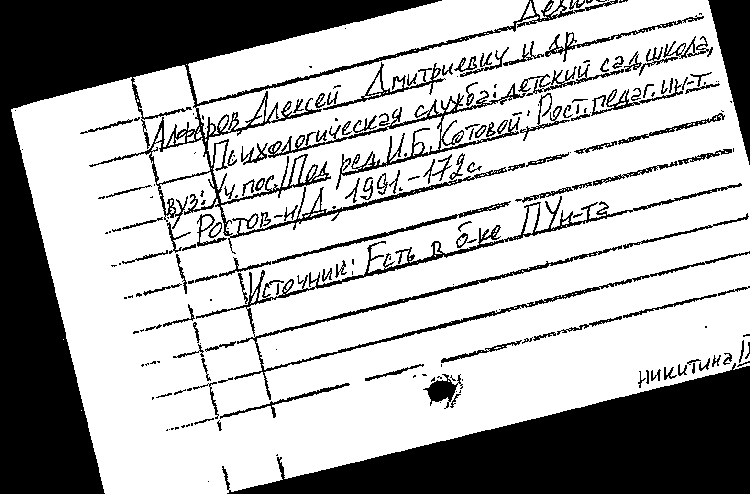 Алферов, Алексей Дмитриевич и др
Психологическая служба: детский сад, школа,
вуз: Уч. пос./Под ред. И.Б. Котовой; Рост. педаг. ин-т.
– Ростов-н/Д., 1991. – 172с.
Источник: Есть в б-ке ПУн-та
Никитина,